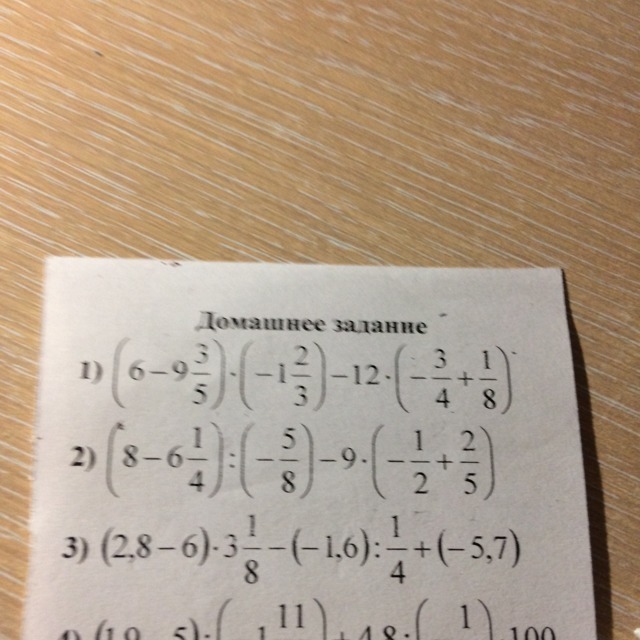 Домашнее задание
1) (6 − 9 3/5) · (−1 2/3) − 12 · (−3/4 + 1/8)
2) (8 − 6 1/4) : (−5/8) − 9 · (−1/2 + 2/5)
3) (2,8 − 6) · 3 1/8 − (−1,6) : 1/4 + (−5,7)